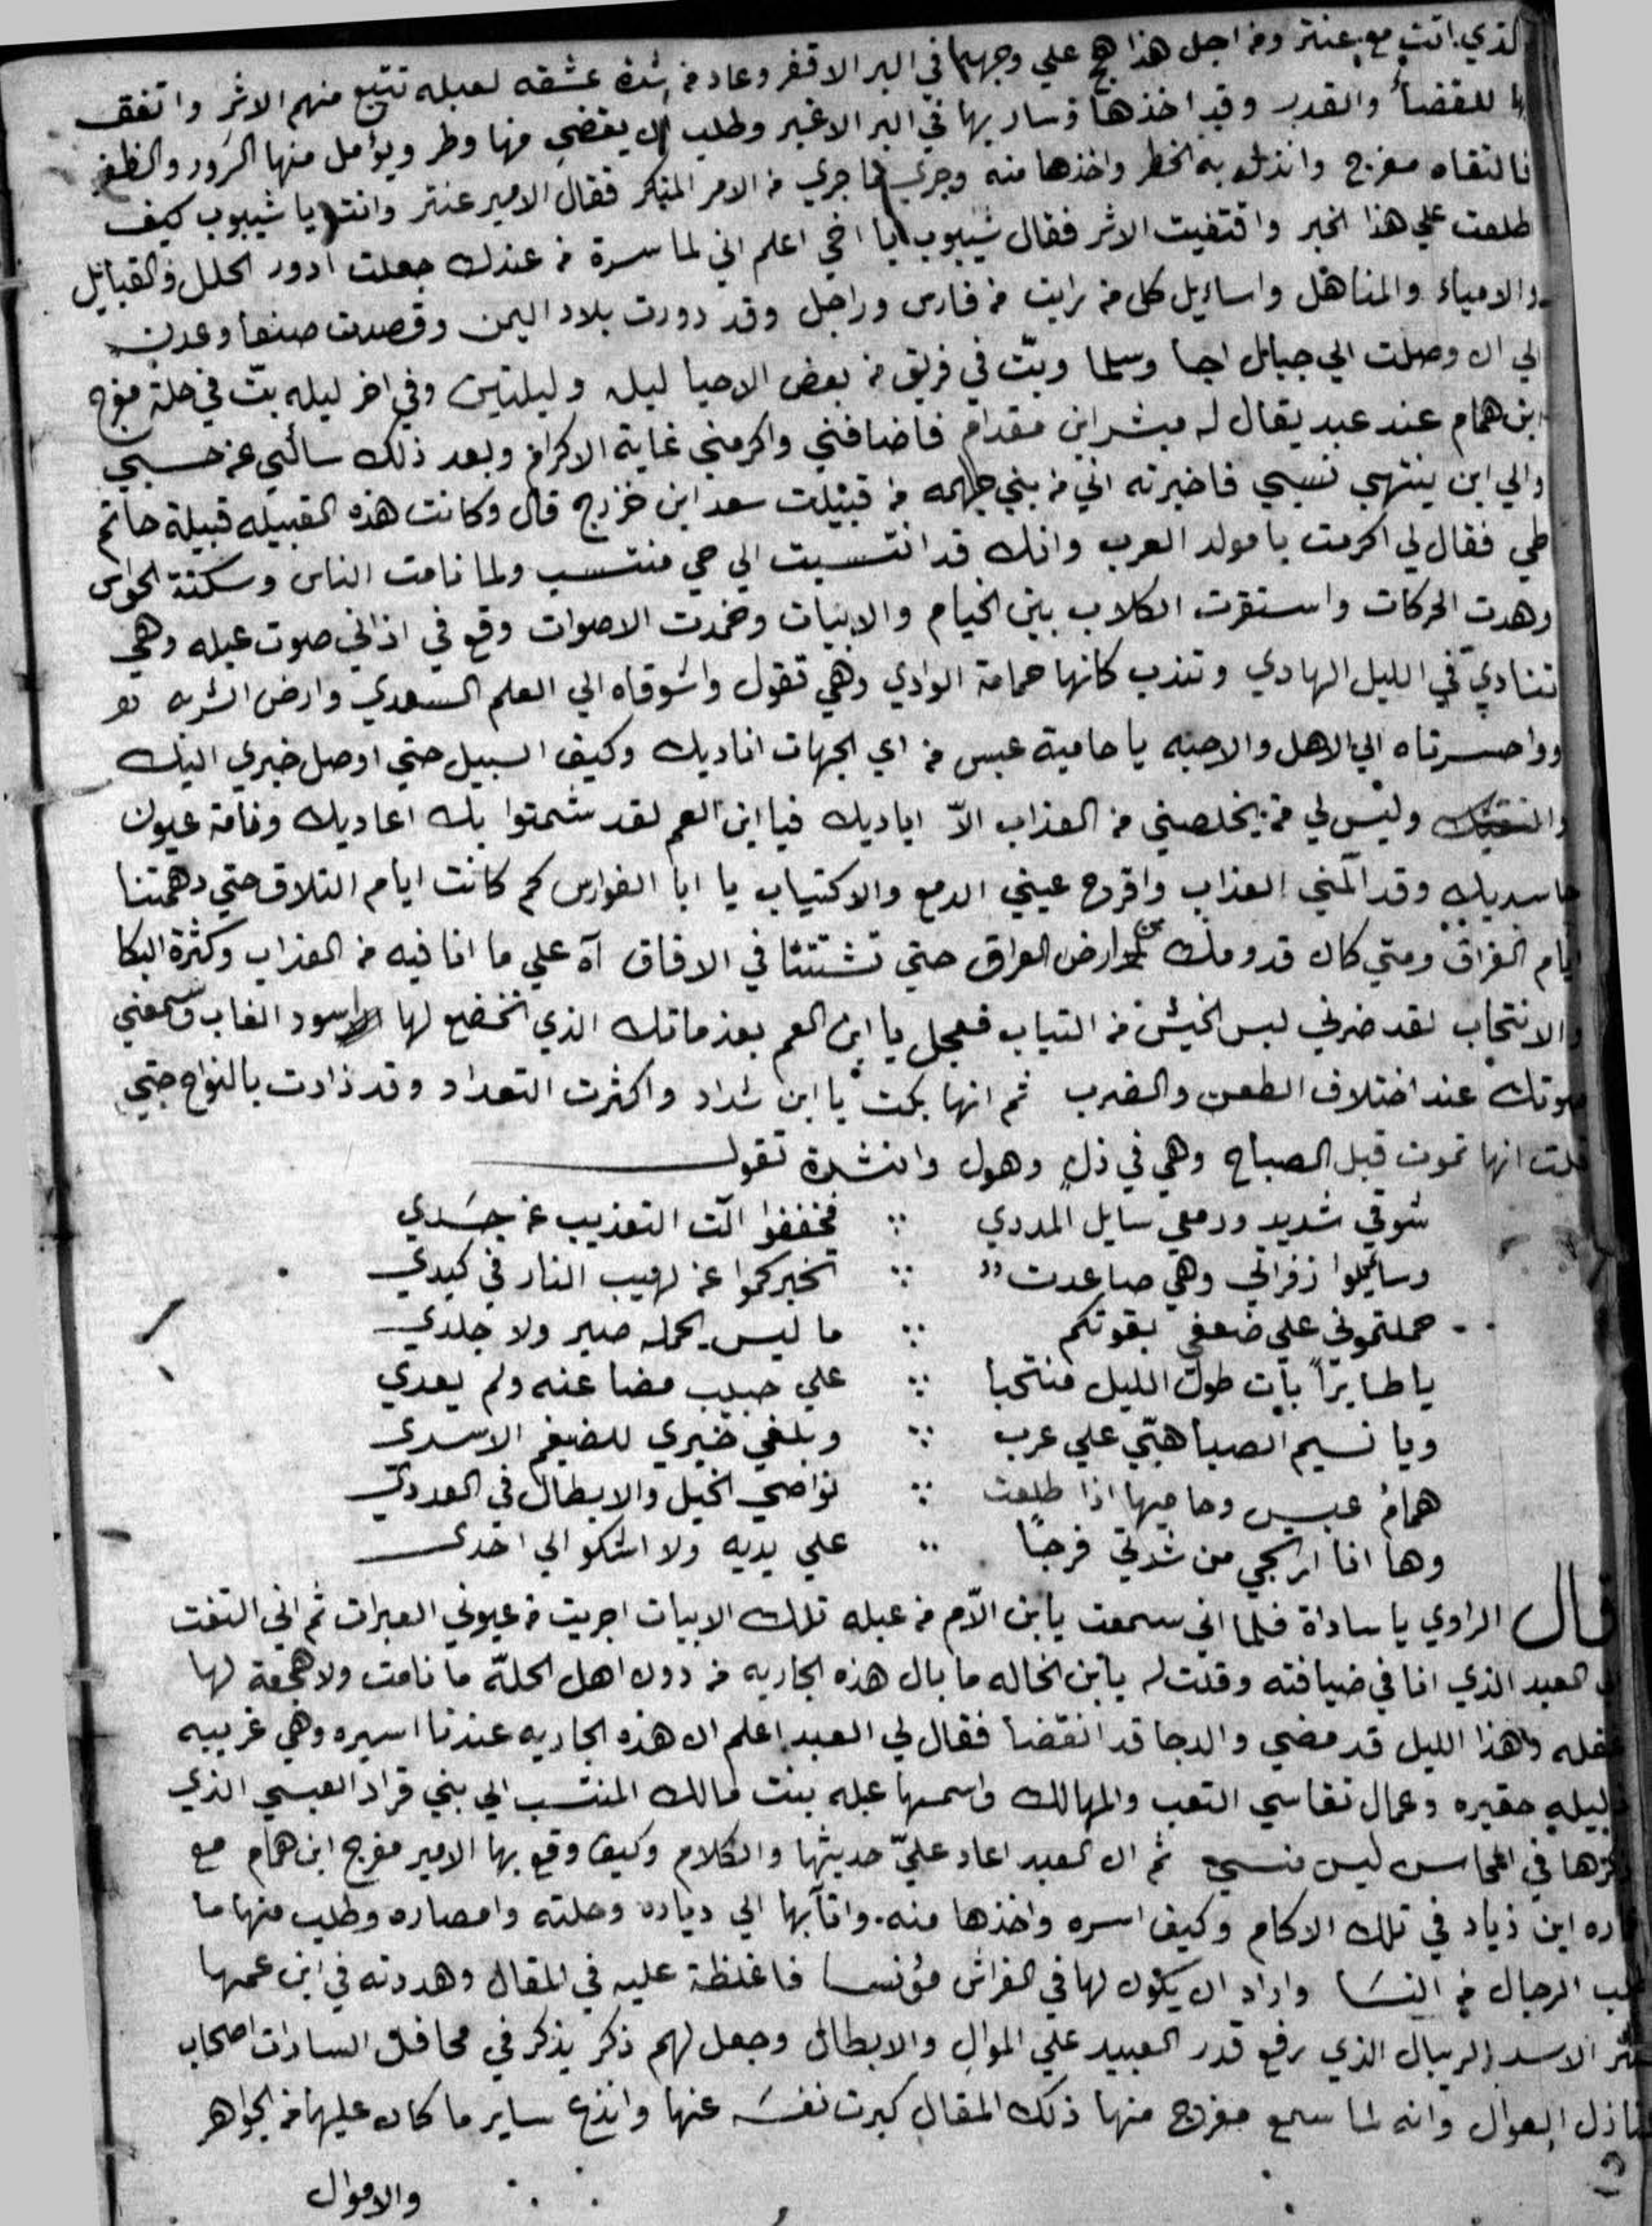 الذي اتت مع عنتر ومن اجل هذا هج علي وجهه في البر الاقفر وعاد من شدة عشقه لعبله تتبع منهم الاثر واتفق
لها للقضأ والقدر وقد اخذها وسار بها في البر الاغبر وطلب ان يقضي منها وطر ويؤامل منها السرور والظفر
فالتقاه مفرج وانذل به الخطر واخذها منه وجري ما جري من الامر المنكر فقال الامير عنتر وانت يا شيبوب كيف
طلعت علي هذا الخبر واقتفيت الاثر فقال شيبوب يا اخي اعلم اني لما سرة من عندك جعلت ادور الحلل والقبايل
والامياء والمناهل واسايل كل من رايت من فارس وراجل وقد دورت بلاد اليمن وقصدت صنعا وعدن
الي ان وصلت الي جبال اجا وسلما وبتّ في فريق من بعض الاحيا ليله وليلتين وفي اخر ليله بتّ في حلة مفرج
ابن همام عند عبد يقال له مبشر ابن مقدام فاضافني واكرمني غاية الاكرام وبعد ذلك سالني عن حسبي
والي اين ينتهي نسبي فاخبرته اني من بني جلهمه من قبيلت سعد ابن خزرج قال وكانت هذه القبيله قبيلة حاتم
طي فقال لي اكرمت يا مولد العرب وانك قد انتسبت الي حي منتسب ولما نامت الناس وسكنة الحواس
وهدت الحركات واستقرت الكلاب بين الخيام والابيات وخمدت الاصوات وقع في اذاني صوت عبله وهي
تنادي في الليل الهادي وتندب كانها حمامة الوادي وهي تقول واشوقاه الي العلم السعدي وارض الشربه
وواحسرتاه الي الاهل والاحبه يا حامية عبس من اي الجهات اناديك وكيف السبيل حتي اوصل خبري اليك
وليس لي من يخلصني من العذاب الاّ اياديك فيا ابن العم لقد شمتوا بك اعاديك ونامة عيون
حاسديك وقد آلمني العذاب واقرح عيني الدمع والاكتياب يا ابا الفوارس كم كانت ايام التلاق حتي دهمتنا
ايام الفراق ومتي كان قدومك من ارض العراق حتي تشتتنا في الافاق آه علي ما انا فيه من العذاب وكثرة البكا
والانتحاب لقد ضرني لبس الخيش من التياب فعجل يا ابن العم بعزماتك الذي تخضع لها اسود الغاب وسمعني
صوتك عند اختلاف الطعن والضرب ثم انها بكت يا ابن شداد واكثرت التعداد وقد ذادت بالنواح حتي
قلت انها تموت قبل الصباح وهي في ذل وهول وانشدة تقول
شوقي شديد ودمعي سايل المددي ∴ فخففوا الت التعذيب عن جسدي
وسايلوا زفراتي وهي صاعدت ∴ تخبركموا عن لهيب النار في كبدي
حملتموني علي ضعفي بقوتكم ∴ ما ليس يحمله صبر ولا جلدي
يا طايراً بات طول الليل منتحبا ∴ علي حبيب مضا عنه ولم يعدي
ويا نسيم الصبا هبّي علي عرب ∴ وبلغي خبري للضيغم الاسدي
همامُ عبس وحاميها اذا طلعت ∴ نواصي الخيل والابطال في العددي
وها انا ارتجي من شدتي فرجًا ∴ علي يديه ولا اشكو الي احدي
قال الراوي يا ساداة فلما اني سمعت يابن الاّم من عبله تلك الابيات اجريت من عيوني العبرات ثم اني التفت
الي العبد الذي انا في ضيافته وقلت له يابن الخاله ما بال هذه الجاريه من دون اهل الحلّه ما نامت ولا هجعة لها
مقله وهذا الليل قد مضي والدجا قد انقضا فقال لي العبد اعلم ان هذه الجاريه عندنا اسيره وهي غريبيه
ذليله حقيره وعمال تقاسي التعب والمهالك واسمها عبله بنت مالك المنتسب الي بني قراد العبسي الذي
ذكرها في المجاس ليس منسي ثم ان العبد اعاد عليّ حديثها والكلام وكيف وقع بها الامير مفرج ابن همام مع
عماره ابن ذياد في تلك الاكام وكيف اسره واخذها منه واتآ بها الي دياره وحلته وامصاره وطلب منها ما
تطلب الرجال من النسَا واراد ان يكون لها في الفراش مؤنسا فاغلظة عليه في المقال وهددته في ابن عمها
عنتر الاسد الريبال الذي رفع قدر العبيد علي الموال والابطال وجعل لهم ذكر يذكر في محافل السادات اصحاب
العوال وانه لما سمع مفرج منها ذلك المقال كبرت نفسَه عنها وانذع ساير ما كان عليها من الجواهر
والاموال